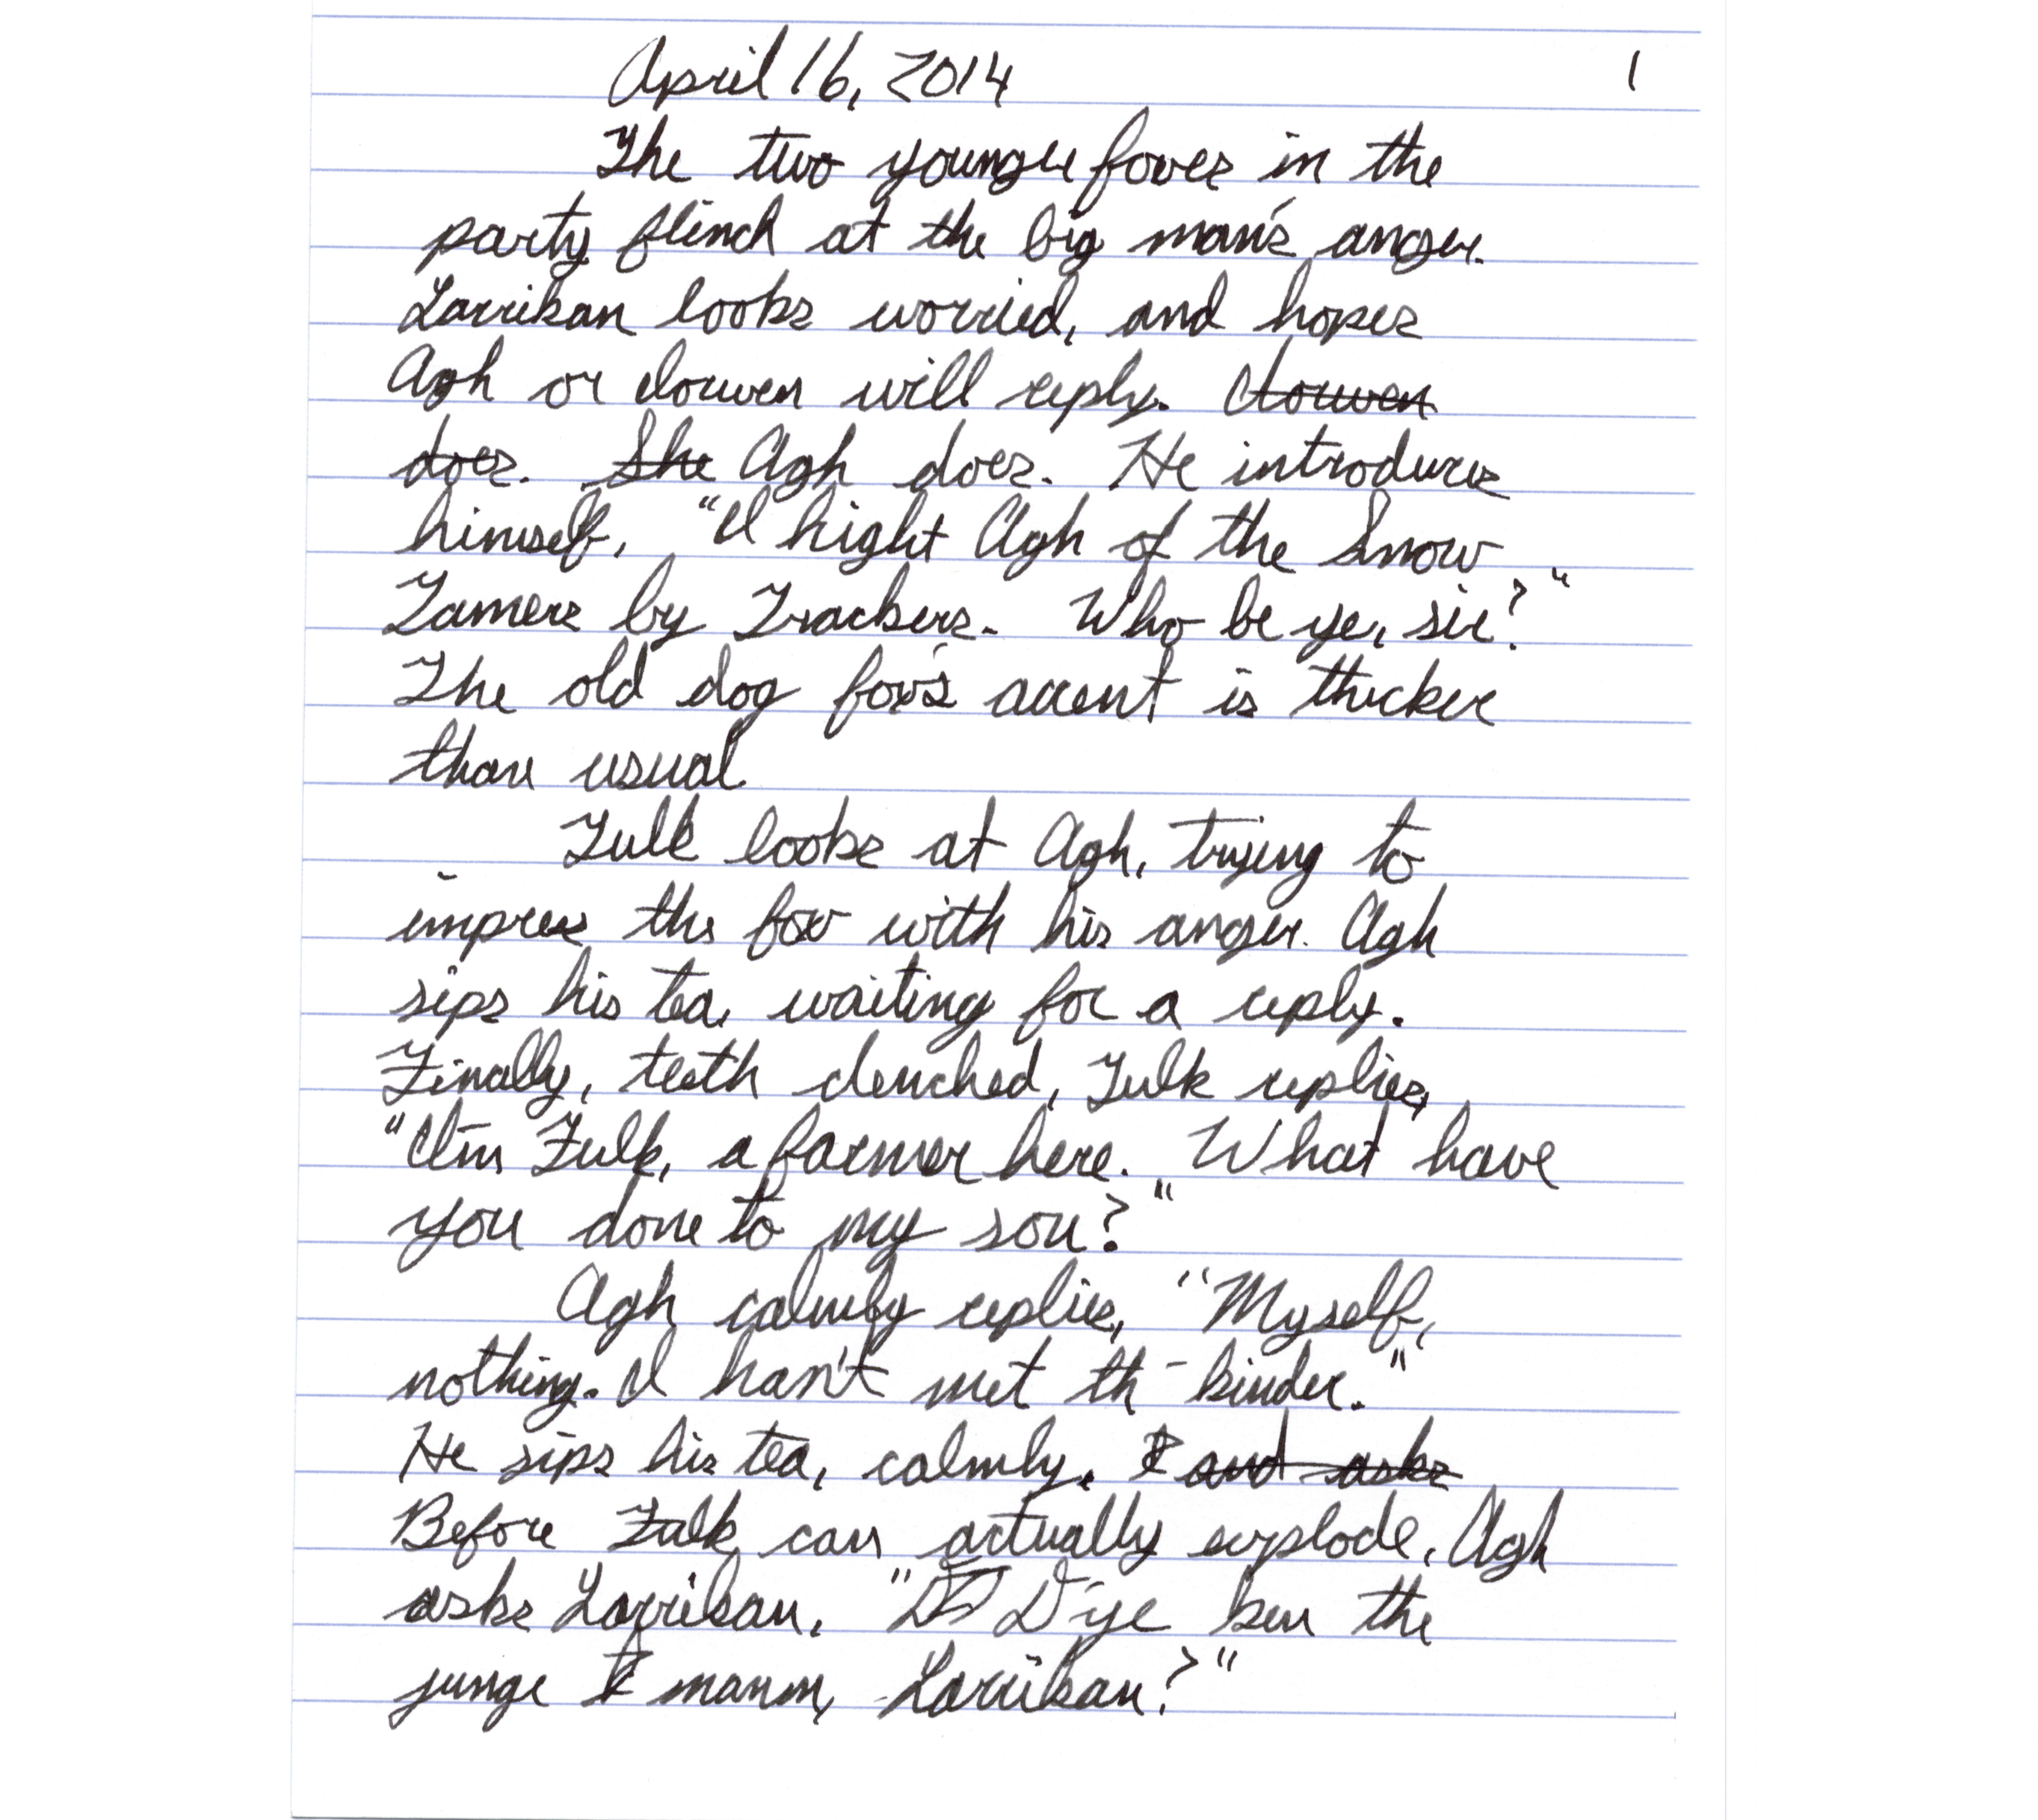 April 16, 2014 1
The two younger foxes in the
party flinch at the big man's anger.
Larrikan looks worried, and hopes
Agh or Iouwen will reply. Iouwen
does. She Agh does. He introduces
himself, "I hight Agh of the Snow
Tamers by Trackers. Who be ye, sir?"
The old dog fox's accent is thicker
than usual.
Fulk looks at Agh, trying to
impress the fox with his anger. Agh
sips his tea, waiting for a reply.
Finally, teeth clenched, Fulk replies,
"I'm Fulk, a farmer here. What have
you done to my son?"
Agh calmly replies, "Myself,
nothing. I han't met th-kinder."
He sips his tea, calmly. and asks
Before Fulk can actually explode, Agh
asks Larrikan, "D'ye ken the
junge mann, Larrikan?"